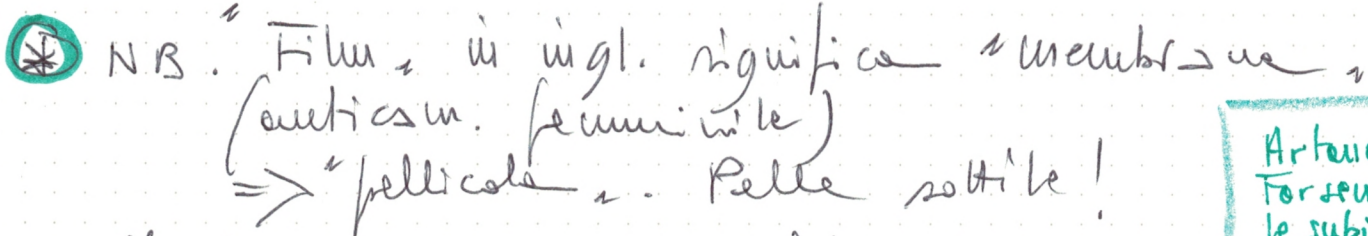 * NB. "Film„ in ingl. significa "membrana„
(anticam. femminile)
=> "pellicola„. Pelle sottile!
le subi